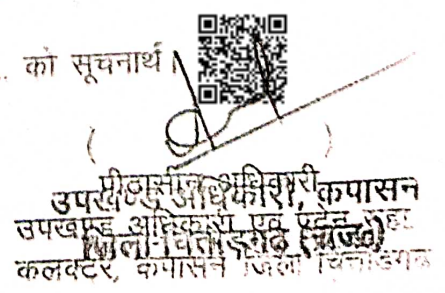 को सूचनार्थ।
( )
पीठासीन अधिकारी
उपखण्ड अधिकारी, कपासन
उपखण्ड अधिकारी एवं पदेन सहा
जिला-चित्तौड़गढ़ (राज०)
कलक्टर, कपासन जिला चित्तौडगढ